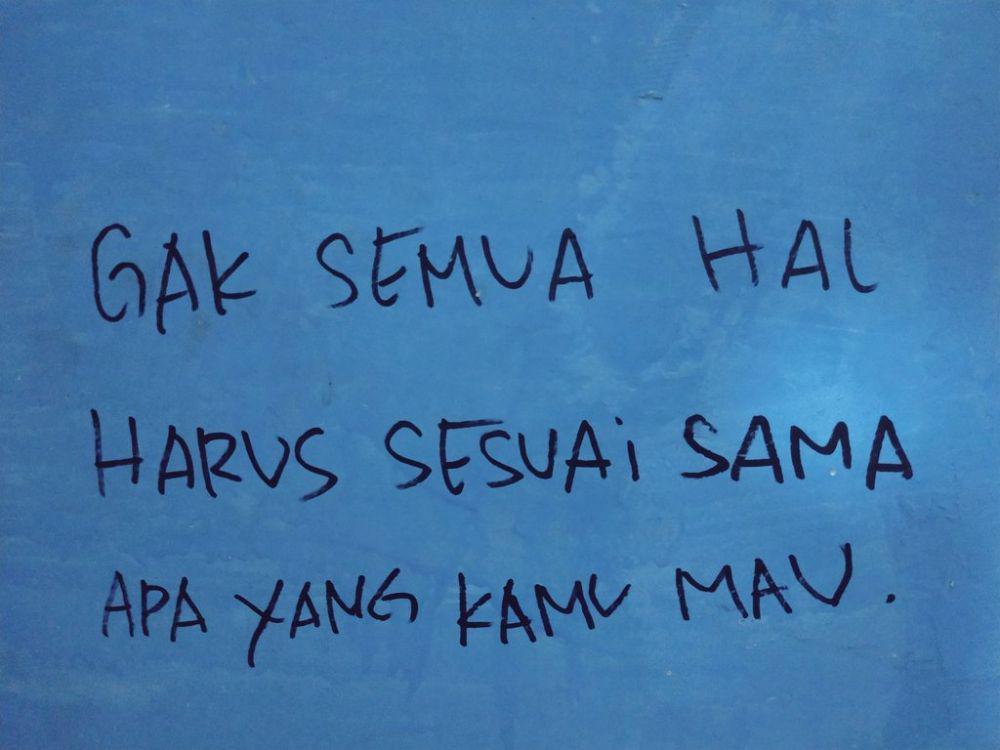 GAK SEMUA HAL
HARUS SESUAi SAMA
APA YANG KAMU MAU.